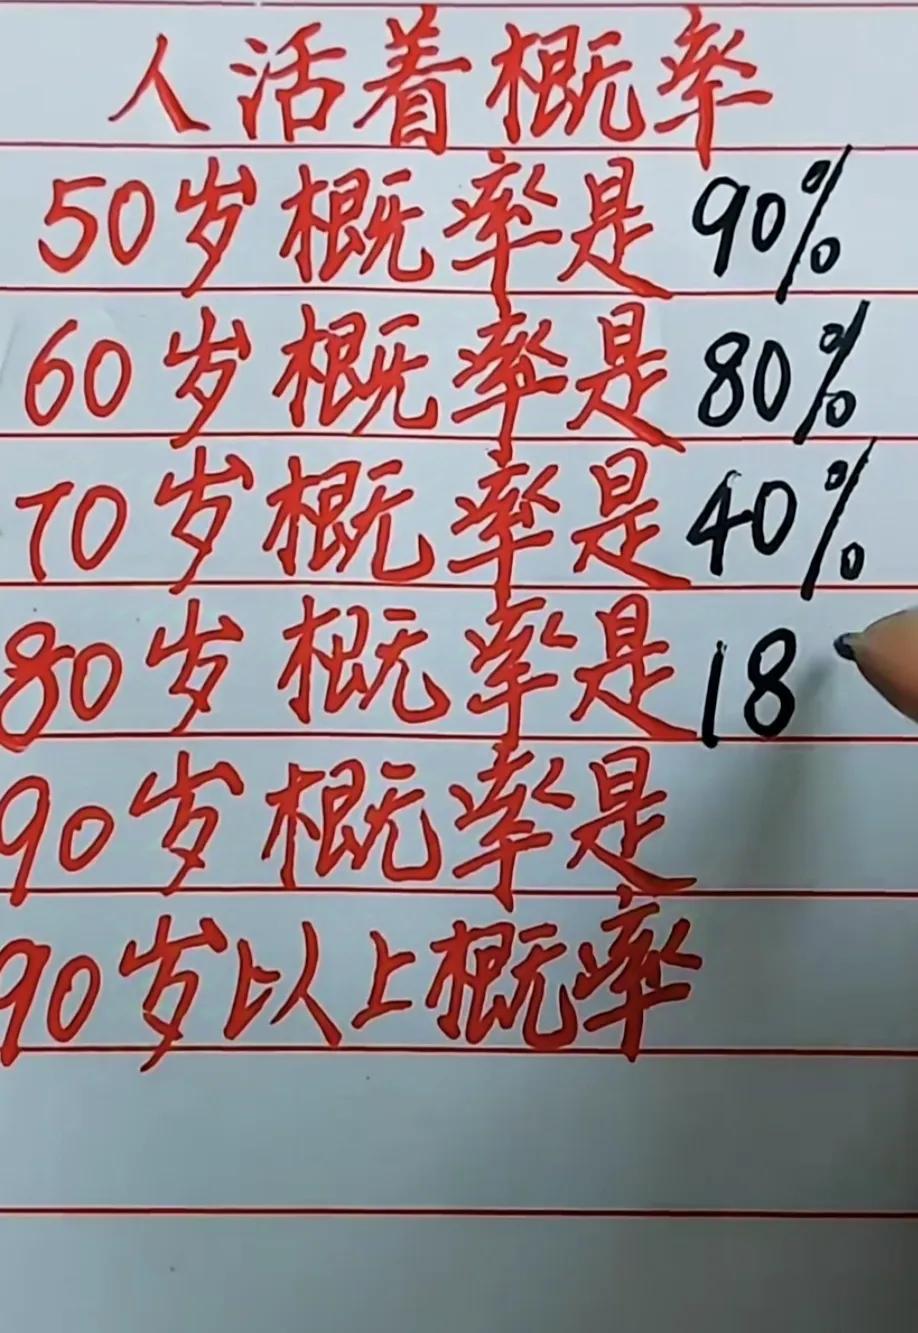 人活着概率
50岁概率是90%
60岁概率是80%
70岁概率是40%
80岁概率是18
90岁概率是
90岁以上概率